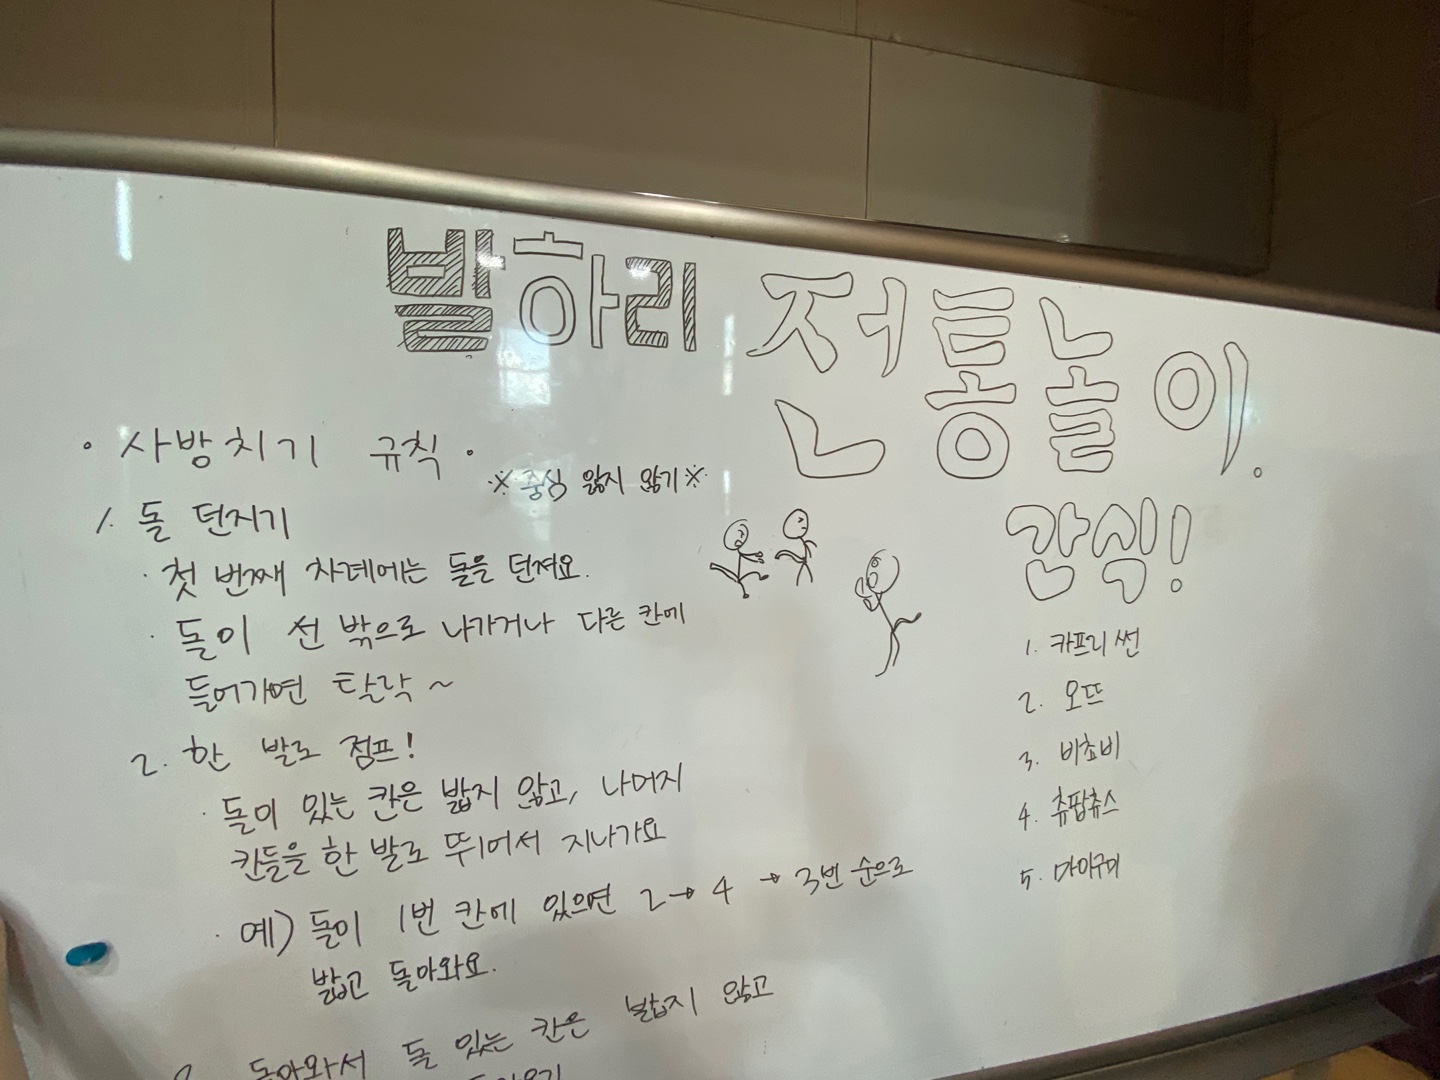 발하리 전통놀이.
• 사방치기 규칙 •
※ 중심 잃지 않기 ※
1. 돌 던지기
· 첫 번째 차례에는 돌을 던져요.
· 돌이 선 밖으로 나가거나 다른 칸에
들어가면 탈락 ~
2. 한 발로 점프!
· 돌이 있는 칸은 밟지 않고, 나머지
칸들을 한 발로 뛰어서 지나가요
· 예) 돌이 1번 칸에 있으면 2→4→3번 순으로
밟고 돌아와요.
돌아와서 돌 있는 칸은 밟지 않고
간식!
1. 카프리썬
2. 오뜨
3. 비쵸비
4. 츄팝츄스
5. 마이구미